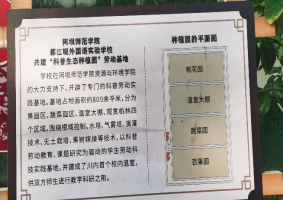 阿坝师范学院
都江堰外国语实验学校
共建“科普生态种植园”劳动基地
学校在阿坝师范学院资源与环境学院
的大力支持下，开展了专门的科普劳动实
践基地。基地占地面积约800余平米，分为
果园区、蔬菜园区、温室大棚、观赏桃林四
个区域。围绕根域控制、水培、气雾培、滴灌
技术、无土栽培、果树嫁接等技术，以科普
劳动教育、课题研究为驱动的学生劳动科
技实践基地，并建成了川内首个校内温室，
供双方师生进行教学科研之用。
种植园的平面图
桃花园
温室大棚
蔬菜园
百果园